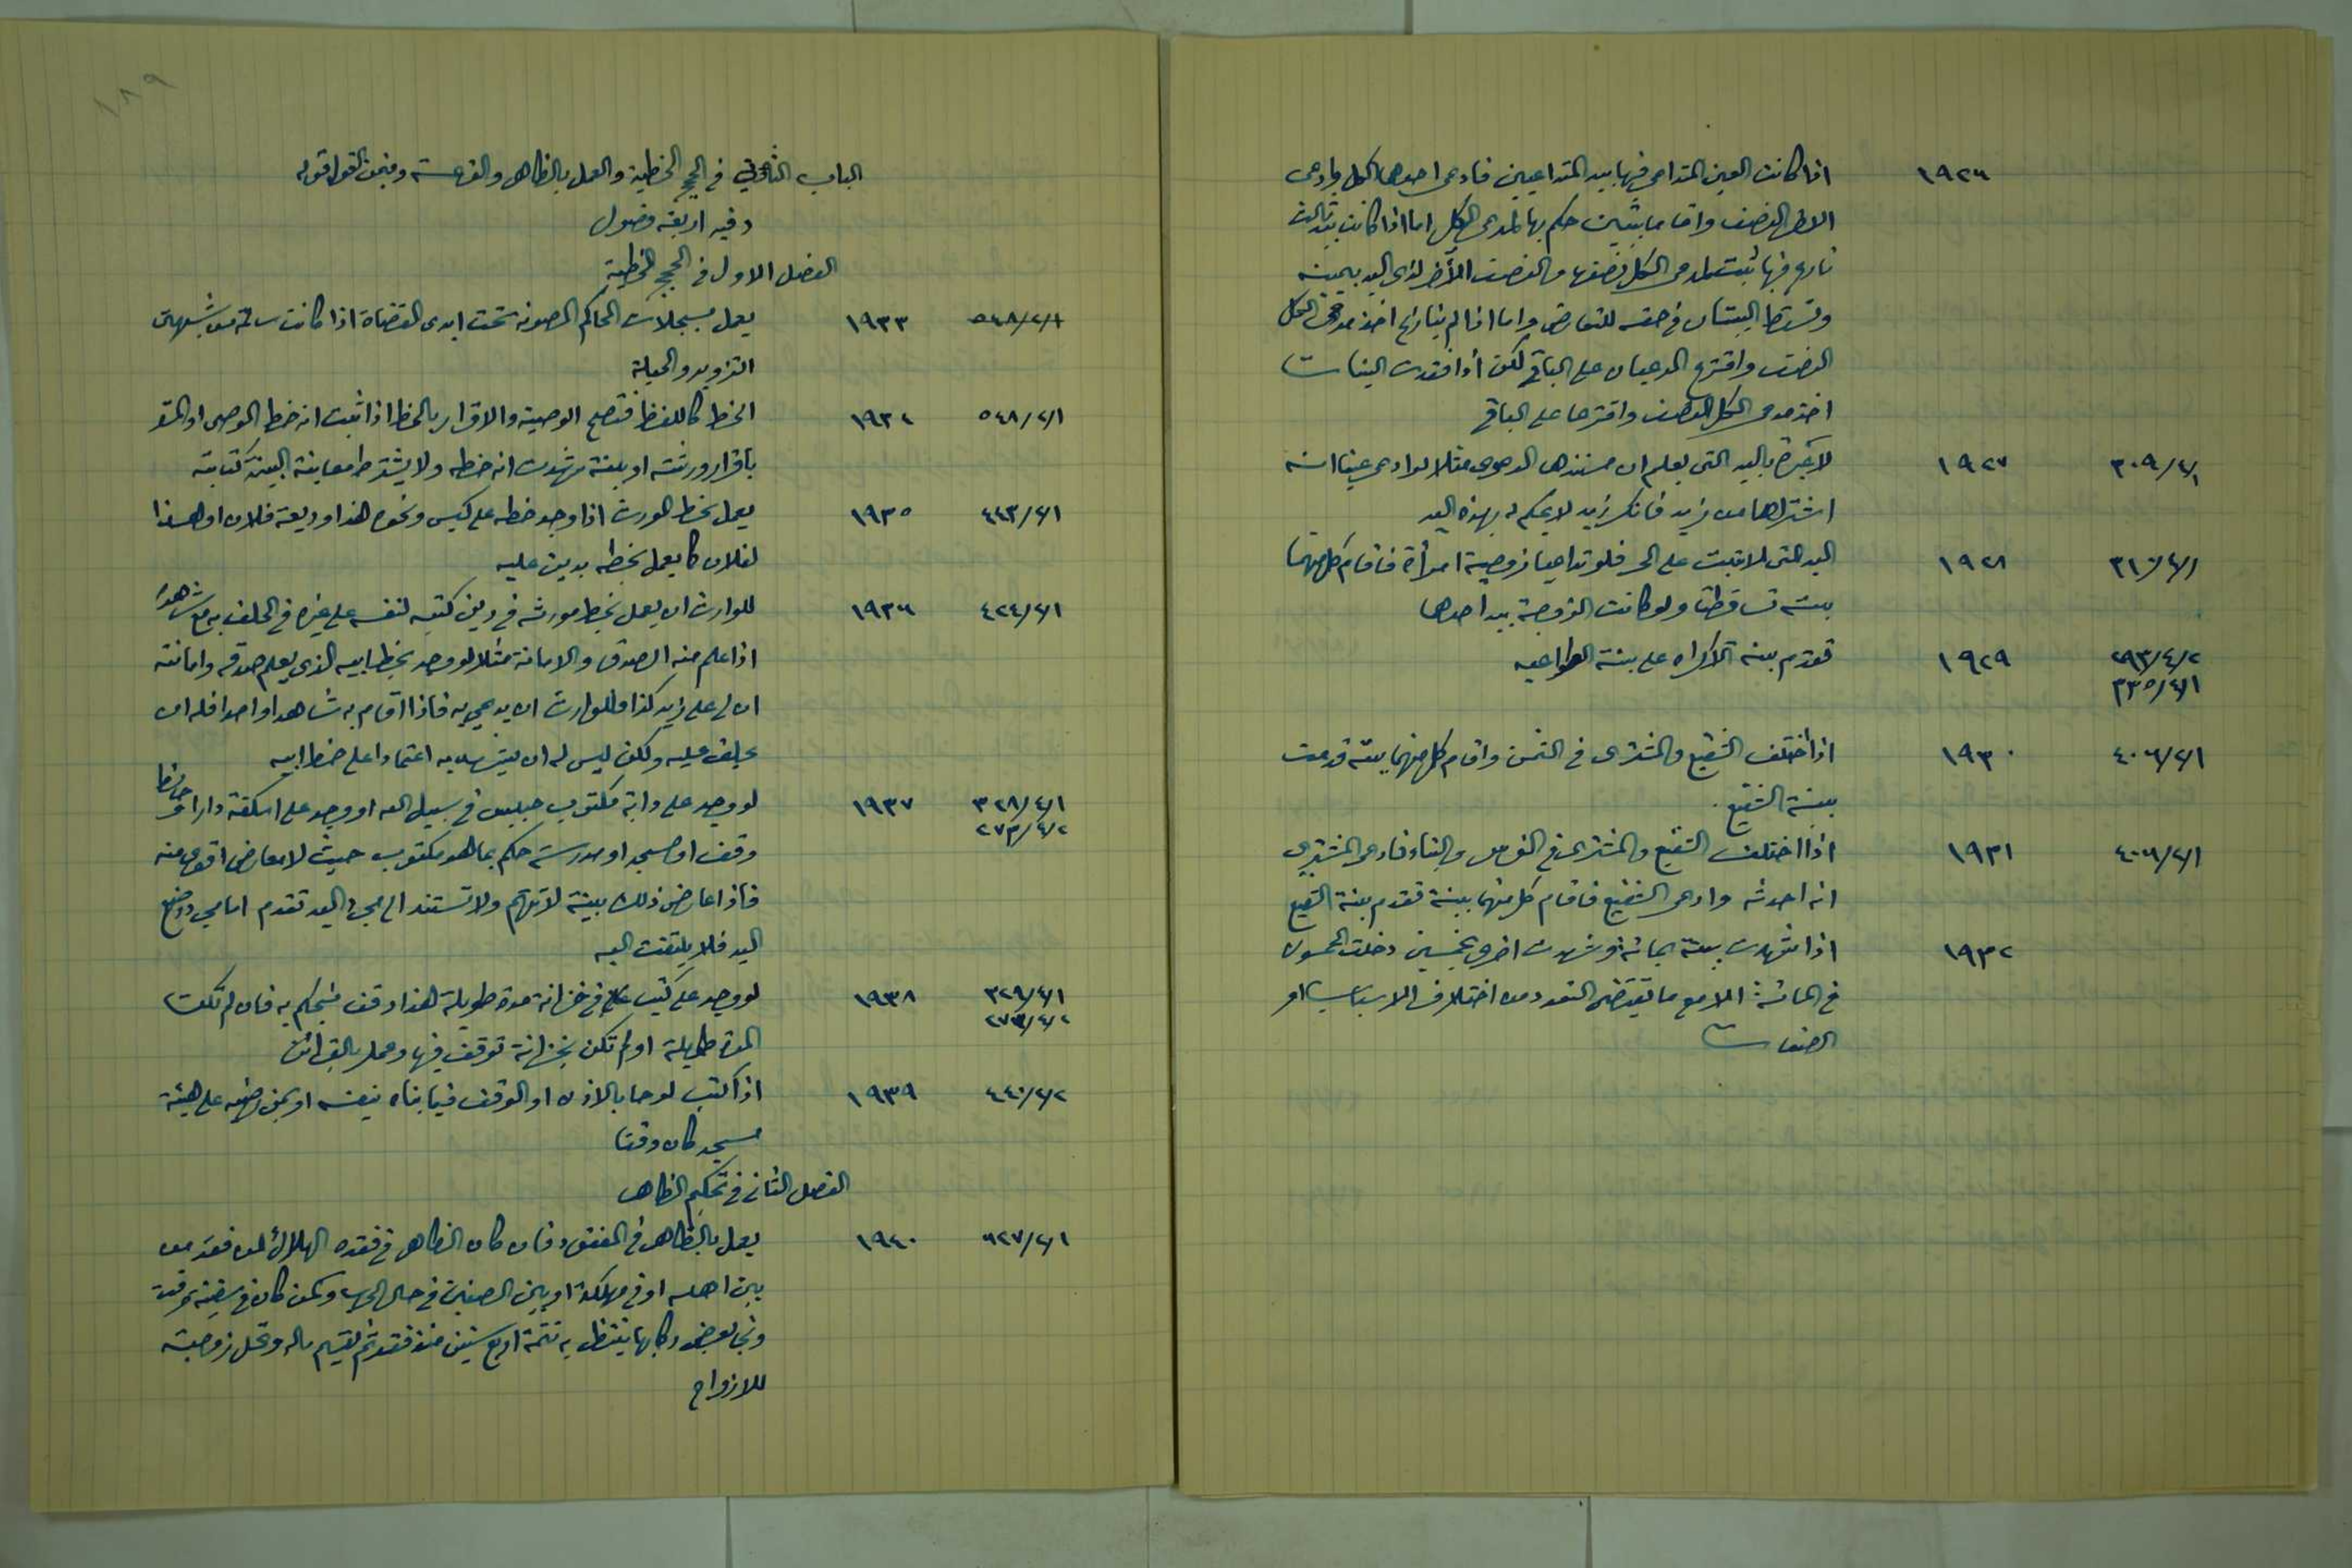 ١٩٢٦ اذا كانت العين المتداعى فيها بيد المتداعيين فادعى احدهما الكل وادعى
الاخر النصف واقاما بينتين حكم بها لمدعى الكل اما اذا كانت بيد ثالث
نازع فيها ثبت لمدعى الكل نصفها والنصف الآخر لذى اليد بيمينه
وتسقط البينتان في حقه للتعارض واما اذا لم ينازع اخذ مدعى الكل
النصف واقترع المدعيان على الباقي لكن اذا فقدت البينات
اخذ مدعى الكل النصف واقترعا على الباقي
٣٠٩/٤/١ ١٩٢٧ لا عبرة باليد التى يعلم ان مستندها الدعوى مثلا لو ادعى عينا انه
اشتراها من زيد فانكر زيد لا يحكم له بهذه اليد
٣١٠/٤/١ ١٩٢٨ اليد التى لا تثبت على الحر فلو تداعيا زوجية امرأة فاقام كل منهما
بينة تساقطتا ولو كانت الزوجة بيد احدهما
٢٩٣/٤/٢ ١٩٢٩ تقدم بينة الاكراه على بينة الطواعيه
٣٣٥/٤/١
٤٠٦/٢/١ ١٩٣٠ اذا اختلف الشفيع والمشترى في الثمن واقام كل منهما بينة قدمت
بينة الشفيع .
٤٠٦/٢/١ ١٩٣١ اذا اختلف الشفيع والمشترى في الغرس والبناء فادعى المشترى
انه احدثه وادعى الشفيع فاقام كل منهما بينة تقدم بينة الشفيع
١٩٣٢ اذا شهدت بينة بمائة وشهدت اخرى بخمسين دخلت الخمسون
في المائة الا مع ما يقتضى التعدد من اختلاف الاسباب او
الصفات
١٨٩
الباب الثانى في الحجج الخطية والعمل بالظاهر والقرعة وفيمن القول قوله
وفيه اربعة فصول
الفصل الاول في الحجج الخطية
٥٤٨/٢/١ ١٩٣٣ يعمل بسجلات المحاكم المصونة تحت ايدى القضاة اذا كانت سالمة من شبهتى
التزوير والحيلة
٥٤٨/٢/١ ١٩٣٤ الخط كاللفظ فتصح الوصية والاقرار بالخط اذا ثبت انه خط الموصى او المقر
باقرار ورثته او ببينة شهدت انه خطه ولا يشترط معاينة البينة كتابته
٤٤٣/٢/١ ١٩٣٥ يعمل بخط المورث اذا وجد خطه على كيس ونحوه هذا وديعة فلان او هذا
لفلان كما يعمل بخطه بدين عليه
٤٢٤/٢/١ ١٩٣٦ للوارث ان يعمل بخط مورثه في دين كتبه لنفسه على غيره في الحلف به مع شاهد
اذا علم منه الصدق والامانة مثلا لو وجد بخط ابيه الذى يعلم صدقه وامانته
ان لى على زيد كذا فللوارث ان يدعى به فاذا اقام به شاهدا واحدا فله ان
يحلف عليه ولكن ليس له ان يشهد به اعتمادا على خط ابيه
٣٢٨/٤/١ ١٩٣٧ لو وجد على دابة مكتوب حبيس في سبيل الله او وجد على اسكفة دار او حائط
٢٧٣/٤/٢ وقف او مسجد او مدرسة حكم بما هو مكتوب حيث لا معارض اقوى منه
فاذا عارض ذلك بينة لا تتهم ولا تستند الى مجرد اليد تقدم اما مجرد وضع
اليد فلا يلتفت اليه
٣٢٩/٤/١ ١٩٣٨ لو وجد على كتب علم في خزانة مدة طويلة هذا وقف فيحكم به فان لم تكن
٢٧٣/٤/٢ المدة طويلة او لم تكن بخزانة توقف فيها وعمل بالقرائن
٤٤٠/٢/٢ ١٩٣٩ اذا كتب لوحا بالاذن او الوقف فيما بناه بنفسه او بمن رضيه على هيئة
مسجد كان وقفا
الفصل الثانى في تحكيم الظاهر
٦٢٧/٢/١ ١٩٤٠ يعمل بالظاهر في المفقود فان كان الظاهر في فقده الهلاك كمن فقد من
بين اهله او في مهلكة او بين الصفين في حال الحرب وكمن كان في سفينة غرقت
ونجا بعض ركابها ينتظر به تتمة اربع سنين منذ فقد ثم يقسم ماله وتحل زوجته
للازواج